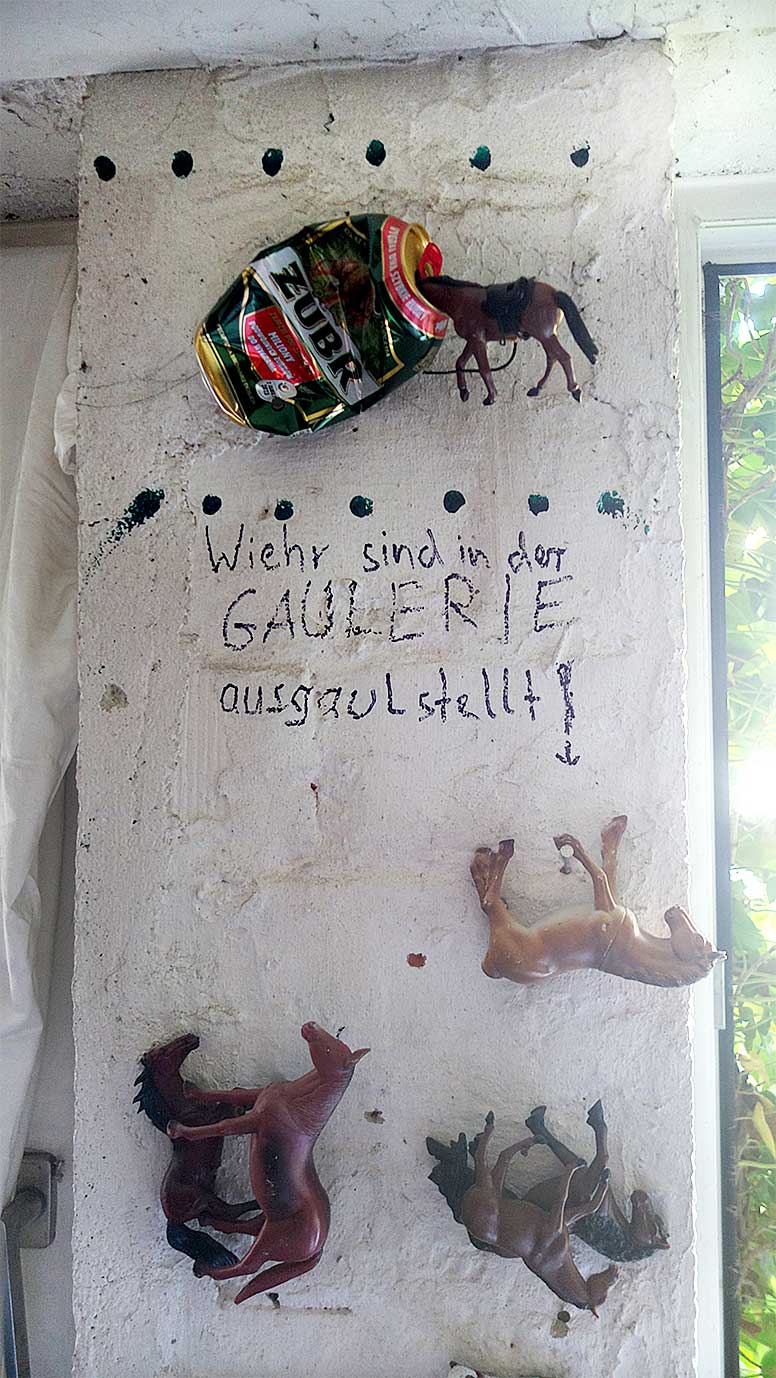 ŻUBR
MILIONY
Wiehr sind in der
GAULERIE
ausgaulstellt!